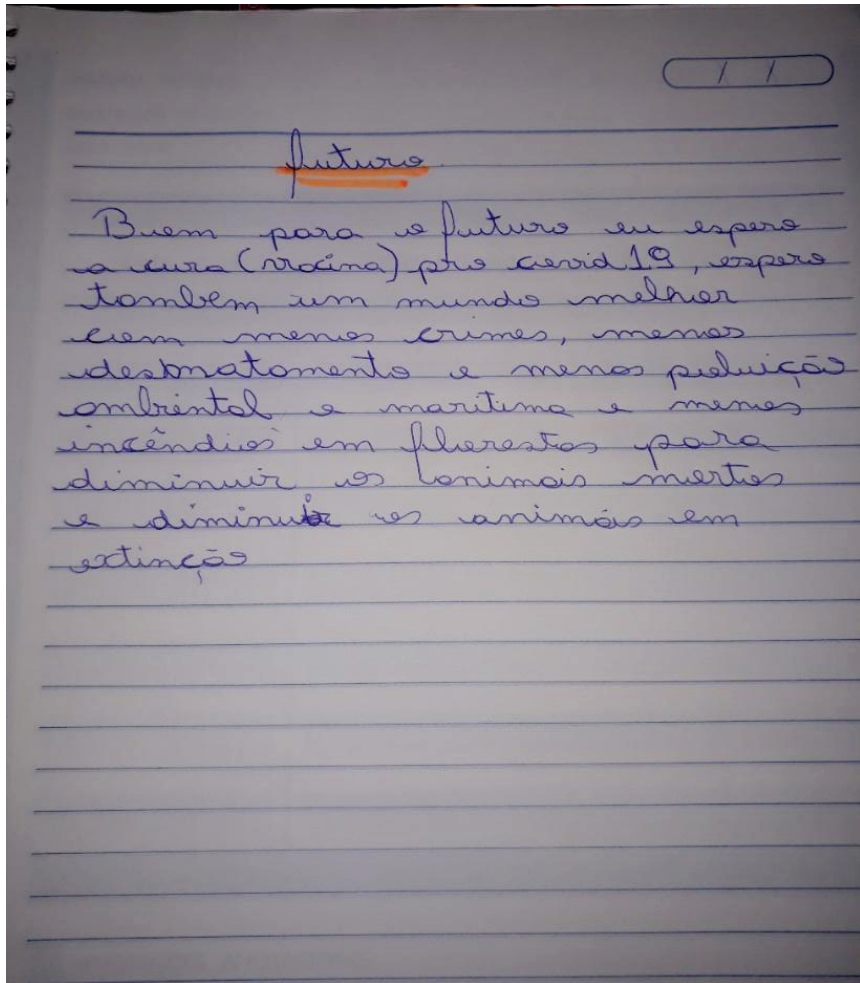 / /
futuro
Buem para o futuro eu espero
a cura (vacina) pro covid 19, espero
tambem um mundo melhor
com menos crimes, menos
desbmatamento e menos poluição
ambiental e maritima e menos
incêndios em florestas para
diminuir os animais mortos
e diminuir os animais em
extinção